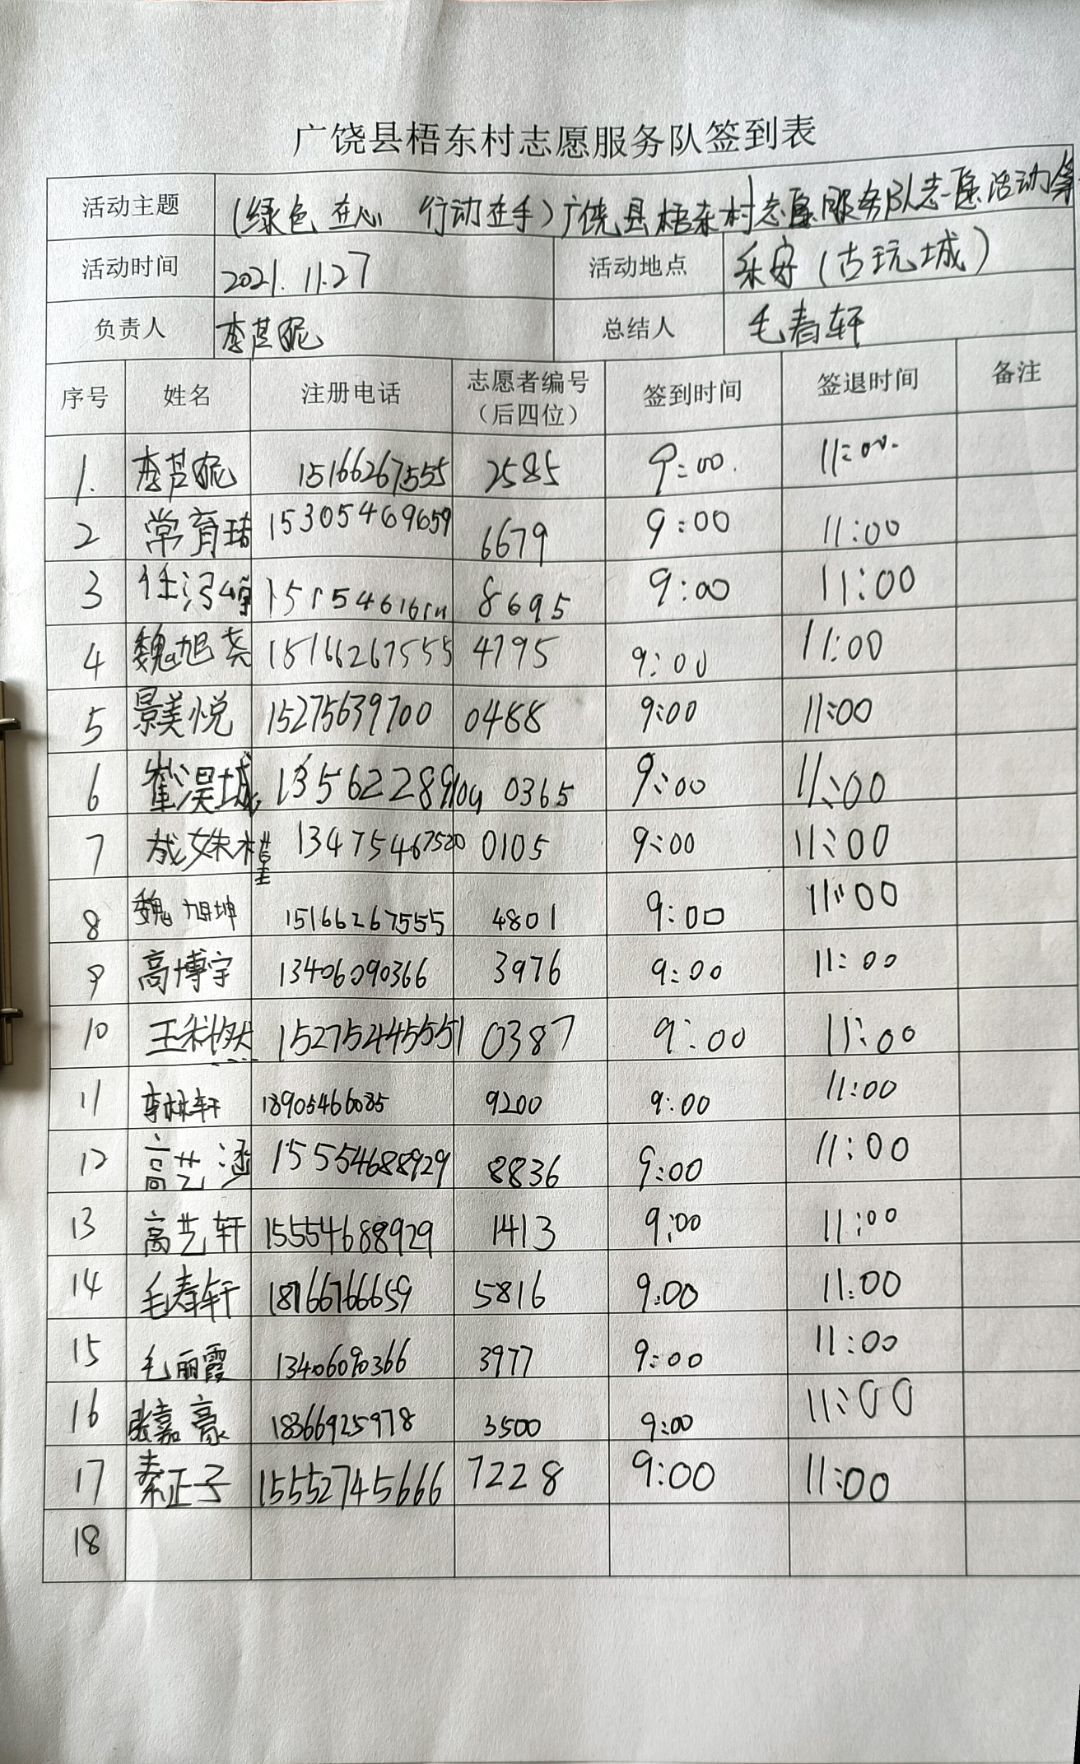 广饶县梧东村志愿服务队签到表
活动主题 (绿色在心 行动在手)广饶县梧东村志愿服务队志愿活动
活动时间 2021.11.27 活动地点 乐安(古玩城)
负责人 李芑昵 总结人 毛春轩
序号 姓名 注册电话 志愿者编号(后四位) 签到时间 签退时间 备注
1. 李芑昵 15166267555 2585 9:00. 11:00.
2 常育 15305469659 6679 9:00 11:00
3 任 8695 9:00 11:00
4 魏旭尧 15166267555 4795 9:00 11:00
5 景美悦 15275639700 0488 9:00 11:00
6 崔淏城 0365 9:00 11:00
7 成姝槿 13475467520 0105 9:00 11:00
8 魏旭坤 15166267555 4801 9:00 11:00
9 高博宇 13406090366 3976 9:00 11:00
10 王 15275245551 0387 9:00 11:00
11 李林轩 18905466085 9200 9:00 11:00
12 高艺涵 15554688929 8836 9:00 11:00
13 高艺轩 15554688929 1413 9:00 11:00
14 毛春轩 18766766659 5816 9:00 11:00
15 毛丽霞 13406090366 3977 9:00 11:00
16 张嘉豪 18366925978 3500 9:00 11:00
17 秦正子 15552745666 7228 9:00 11:00
18